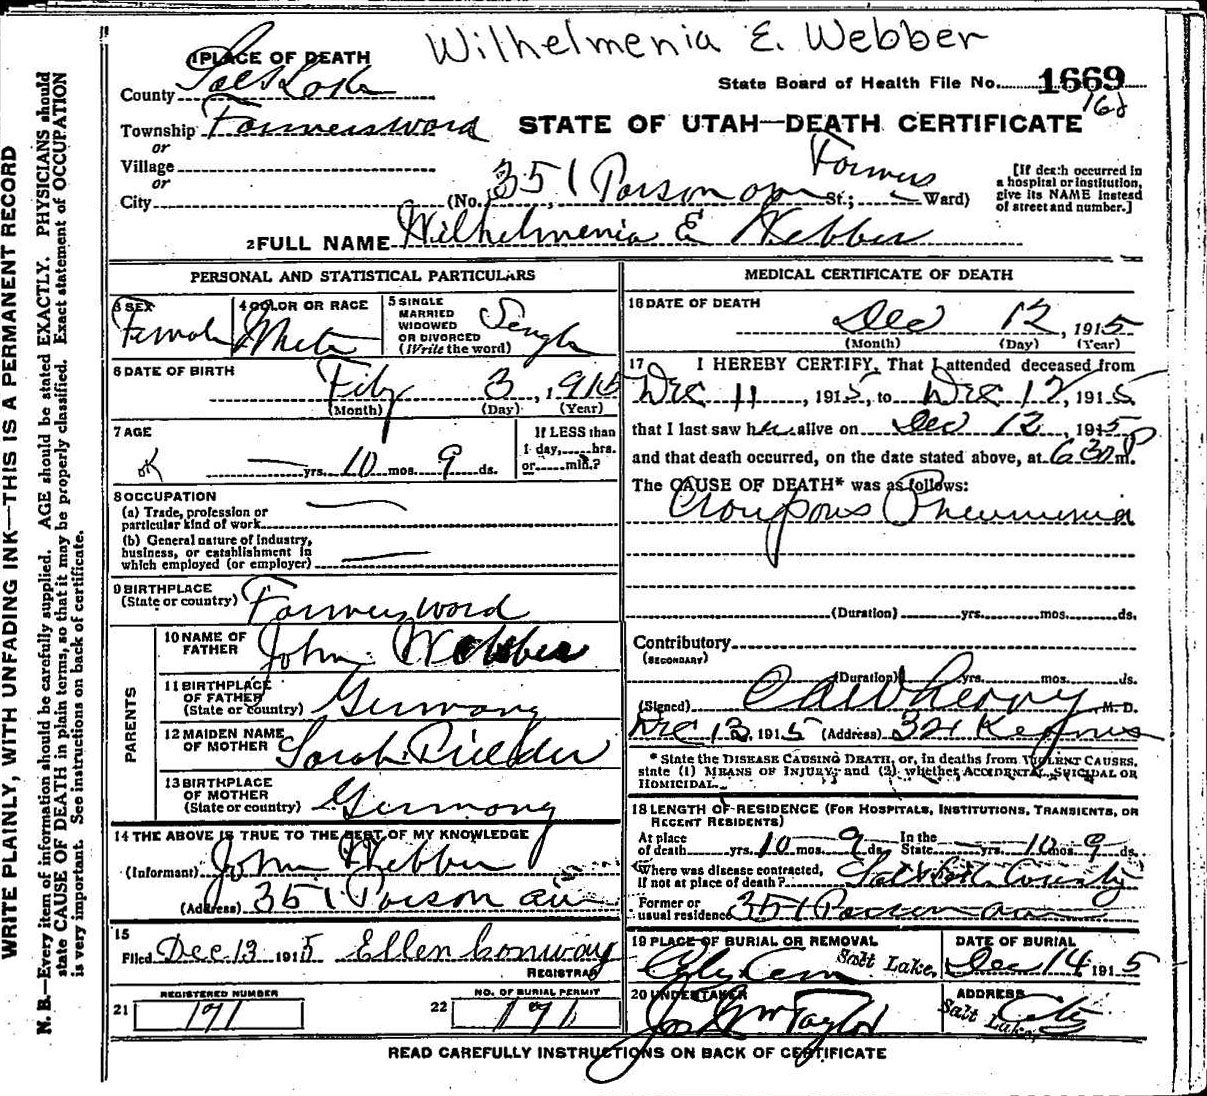 Wilhelmenia E. Webber
1 PLACE OF DEATH
State Board of Health File No. 1669
County Salt Lake
168
Township Farmers Ward
STATE OF UTAH—DEATH CERTIFICATE
or
Village
or
Farmers
City (No. 351 Parson St.; Ward)
[If death occurred in a hospital or institution, give its NAME instead of street and number.]
2 FULL NAME Wilhelmenia E Webber
PERSONAL AND STATISTICAL PARTICULARS
3 SEX Female
4 COLOR OR RACE White
5 SINGLE MARRIED WIDOWED OR DIVORCED (Write the word) Single
6 DATE OF BIRTH Feb 3, 1915
(Month) (Day) (Year)
7 AGE
OK — yrs. 10 mos. 9 ds.
If LESS than 1 day, hrs. or min.?
8 OCCUPATION
(a) Trade, profession or particular kind of work
(b) General nature of industry, business, or establishment in which employed (or employer)
9 BIRTHPLACE (State or country) Farmers Ward
PARENTS
10 NAME OF FATHER John Webber
11 BIRTHPLACE OF FATHER (State or country) Germany
12 MAIDEN NAME OF MOTHER Sarah
13 BIRTHPLACE OF MOTHER (State or country) Germany
14 THE ABOVE IS TRUE TO THE BEST OF MY KNOWLEDGE
(Informant) John Webber
(Address) 351 Parson
15
Filed Dec 13 1915 Ellen Conway
REGISTRAR
REGISTERED NUMBER
21 191
NO. OF BURIAL PERMIT
22 191
MEDICAL CERTIFICATE OF DEATH
16 DATE OF DEATH
Dec 12, 1915
(Month) (Day) (Year)
17 I HEREBY CERTIFY, That I attended deceased from
Dec 11, 1915, to Dec 12, 1915
that I last saw her alive on Dec 12, 1915
and that death occurred, on the date stated above, at 6 30 P m.
The CAUSE OF DEATH* was as follows:
Croupous Pneumonia
(Duration) yrs. mos. ds.
Contributory
(SECONDARY)
(Duration) yrs. mos. ds.
(Signed) M. D.
Dec 13, 1915 (Address) 321 Kearns
* State the DISEASE CAUSING DEATH, or, in deaths from VIOLENT CAUSES, state (1) MEANS OF INJURY; and (2) whether ACCIDENTAL, SUICIDAL OR HOMICIDAL.
18 LENGTH OF RESIDENCE (FOR HOSPITALS, INSTITUTIONS, TRANSIENTS, OR RECENT RESIDENTS)
At place of death yrs. 10 mos. 9 ds. In the State yrs. 10 mos. 9 ds.
Where was disease contracted, if not at place of death? Salt Lake County
Former or usual residence 351 Parson
19 PLACE OF BURIAL OR REMOVAL
City Cem Salt Lake,
DATE OF BURIAL
Dec 14 1915
20 UNDERTAKER
Jos Wm Taylor
ADDRESS
Salt Lake, City
READ CAREFULLY INSTRUCTIONS ON BACK OF CERTIFICATE
WRITE PLAINLY, WITH UNFADING INK—THIS IS A PERMANENT RECORD
N. B.—Every item of information should be carefully supplied. AGE should be stated EXACTLY. PHYSICIANS should
state CAUSE OF DEATH in plain terms, so that it may be properly classified. Exact statement of OCCUPATION
is very important. See instructions on back of certificate.